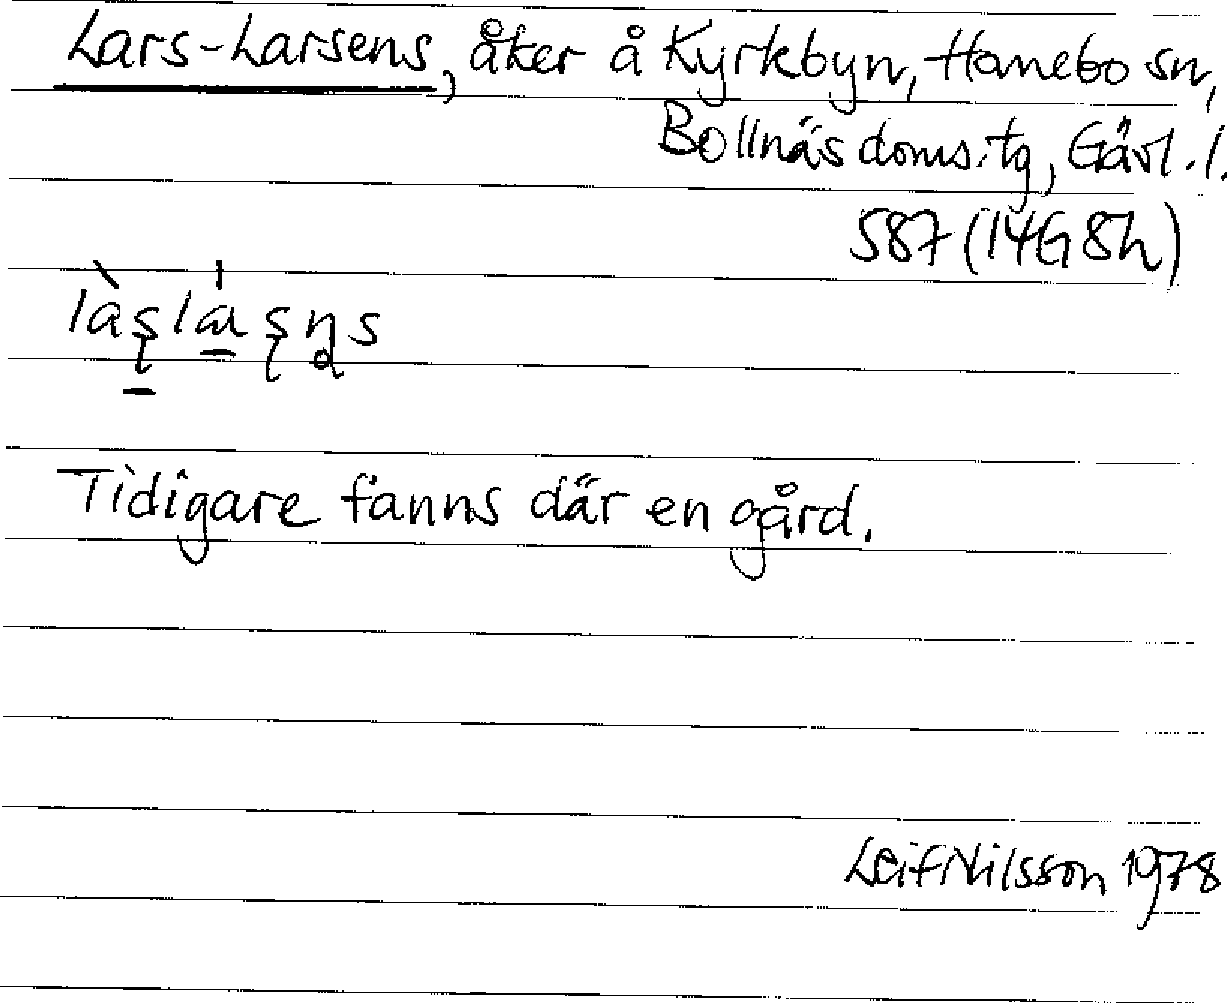 Lars-Larsens, åker å Kyrkbyn, Hanebo sn,
Bollnäs doms.tg, Gävl.l.
587 (14G 8h)
Tidigare fanns där en gård.
Leif Nilsson 1978